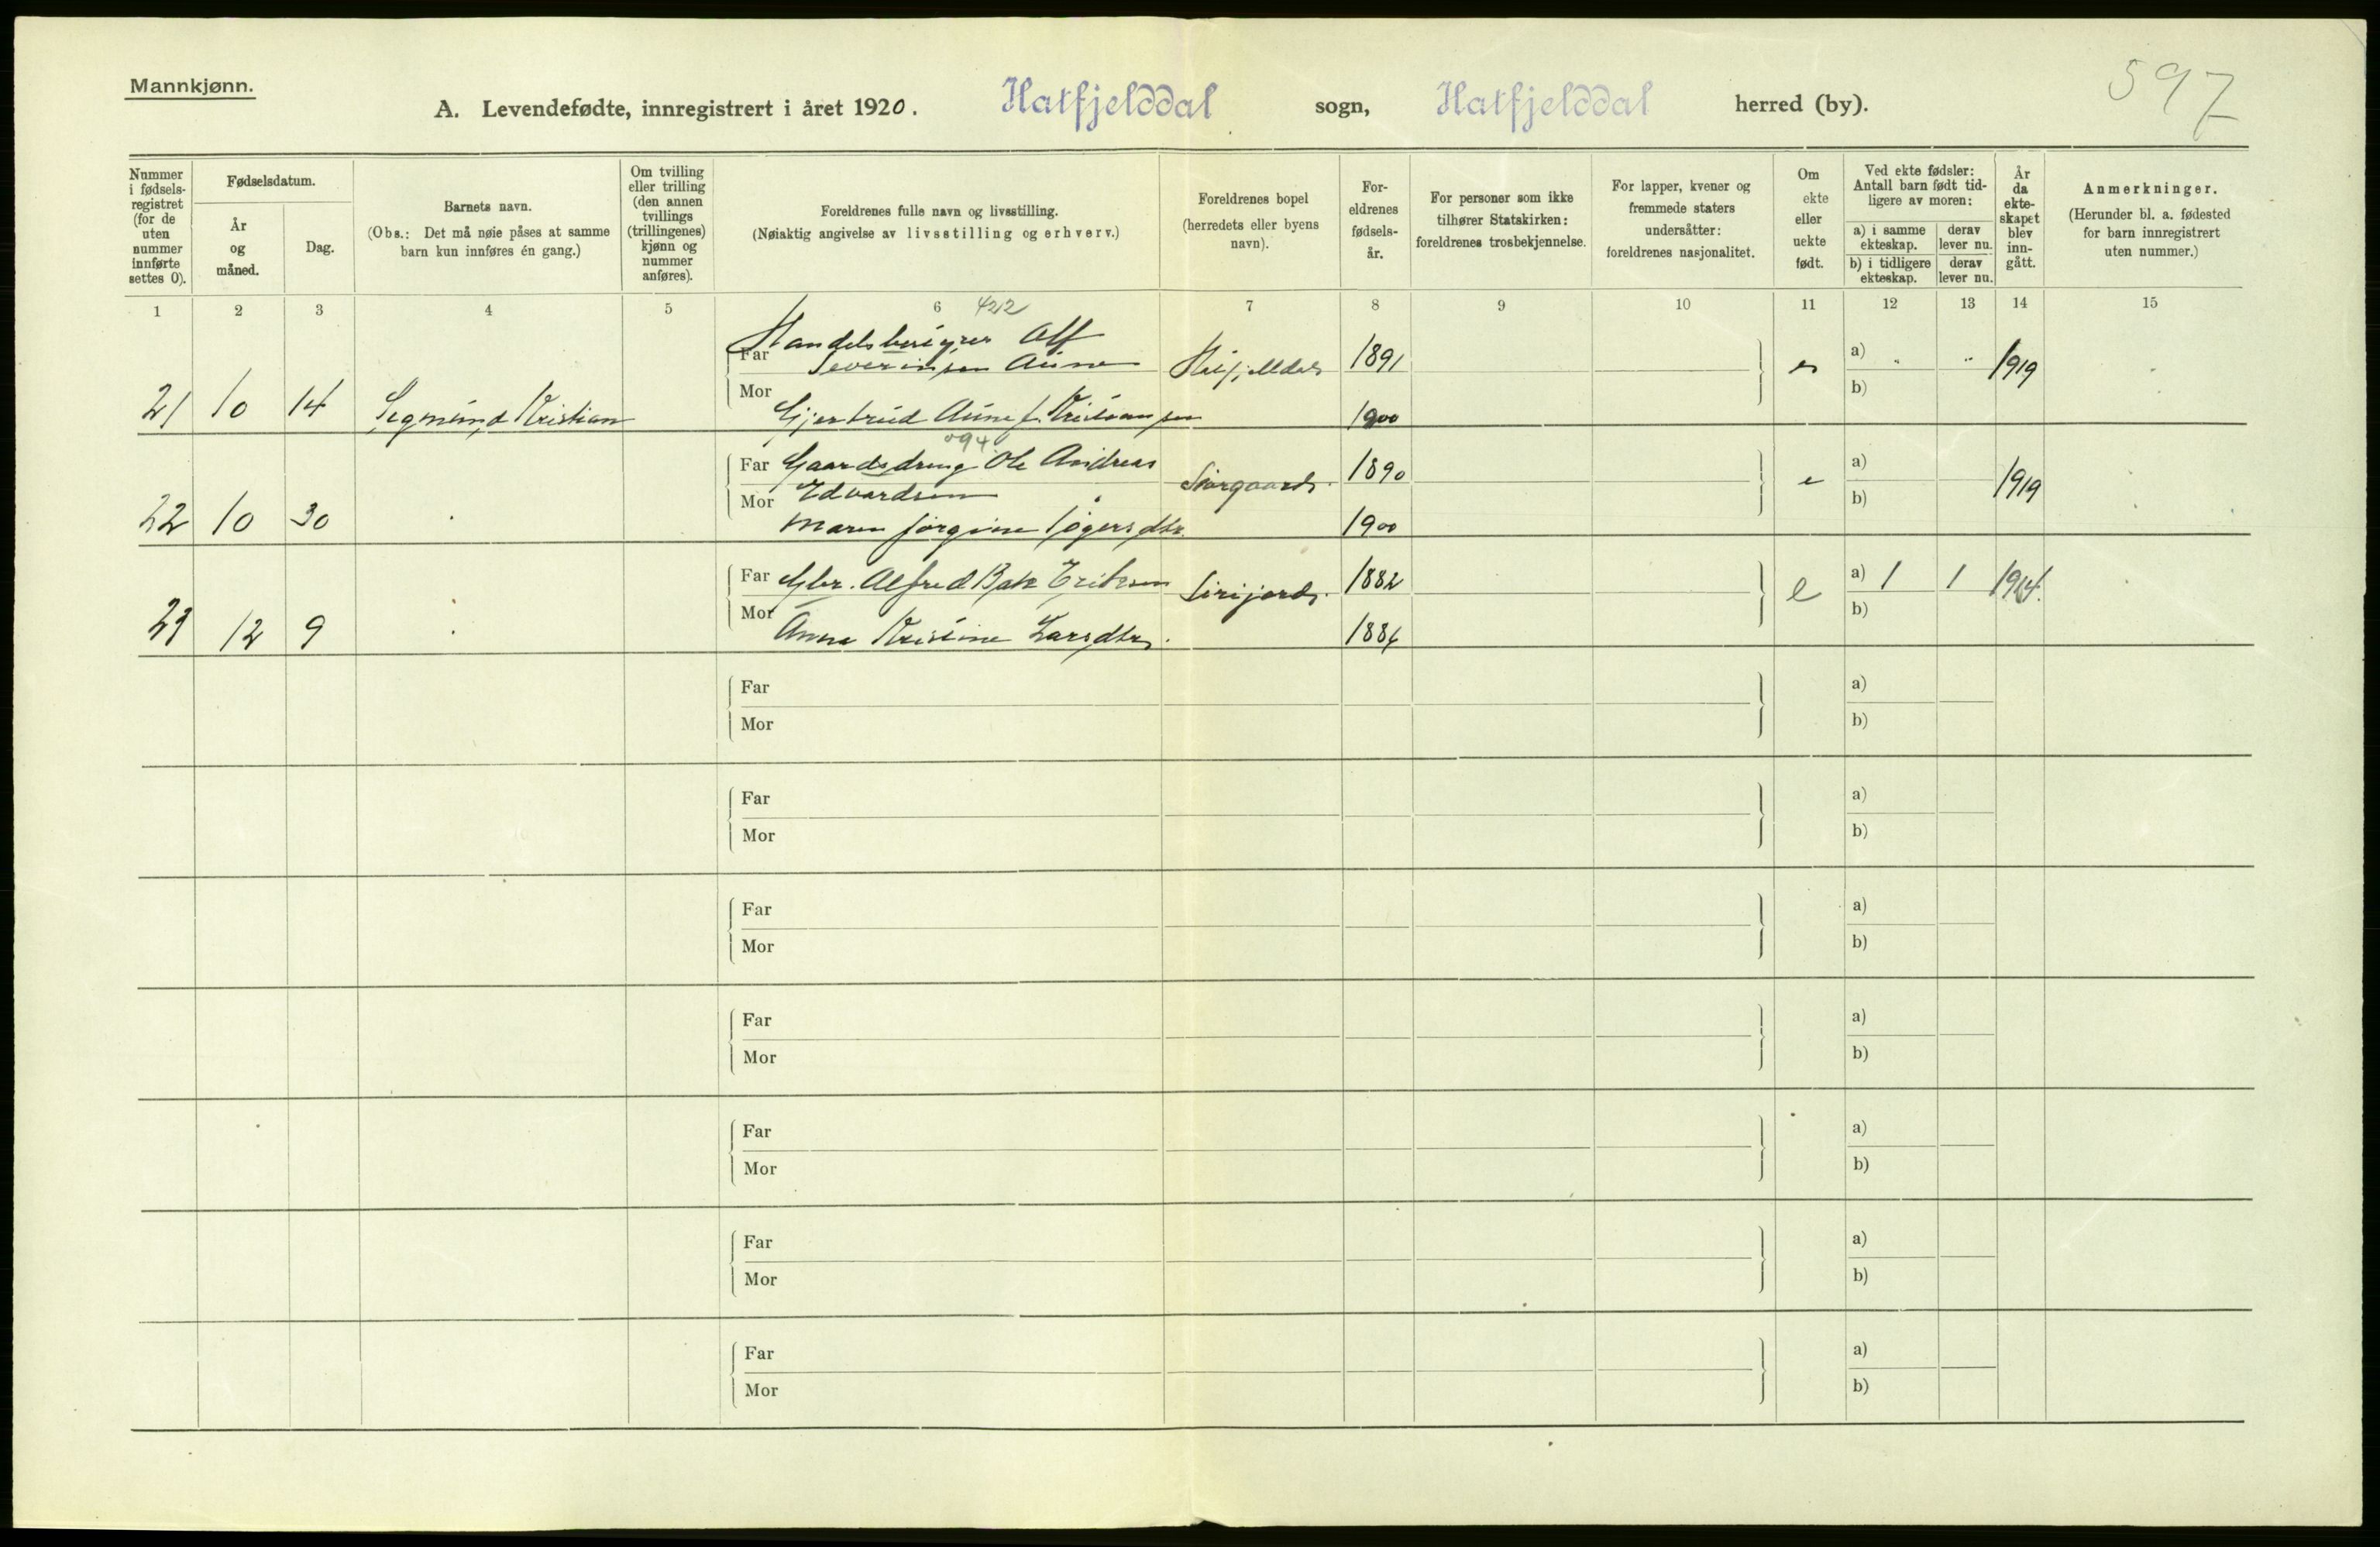 Mannkjønn.
597
A. Levendefødte, innregistrert i året 1920. Hatfjelddal sogn, Hatfjelddal herred (by).
Nummer i fødsels-registret (for de uten nummer innførte settes 0).
Fødselsdatum.
År og måned.
Dag.
Barnets navn.
(Obs.: Det må nøie påses at samme barn kun innføres én gang.)
Om tvilling eller trilling (den annen tvillings (trillingenes) kjønn og nummer anføres).
Foreldrenes fulle navn og livsstilling.
(Nøiaktig angivelse av livsstilling og erhverv.)
Foreldrenes bopel
(herredets eller byens navn).
For-eldrenes fødsels-år.
For personer som ikke tilhører Statskirken: foreldrenes trosbekjennelse.
For lapper, kvener og fremmede staters undersåtter: foreldrenes nasjonalitet.
Om ekte eller uekte født.
Ved ekte fødsler: Antall barn født tid-ligere av moren:
a) i samme ekteskap.
derav lever nu.
b) i tidligere ekteskap.
derav lever nu.
År da ekte-skapet blev inn-gått.
Anmerkninger.
(Herunder bl. a. fødested for barn innregistrert uten nummer.)
1 2 3 4 5 6 7 8 9 10 11 12 13 14 15
422
Handelsbestyrer Alf
Far Severinsen Aune Hatfjelldal 1891 a) " " 1919
21 10 14 Sigmund Kristian
Mor Gjertrud Aune f. Kristiansen 1900 b)
094
Far Gaardsdreng Ole Andreas 1890 e a) 1919
Edvardsen
22 10 30
Mor Maren Jørgine 1900 b)
Far Gbr. Alfred Bak Eriksen Sirijord 1882 e a) 1 1 1914.
23 12 9
Mor Anna Kristine Larsdtr. 1884 b)
Far a)
Mor b)
Far a)
Mor b)
Far a)
Mor b)
Far a)
Mor b)
Far a)
Mor b)
Far a)
Mor b)
Far a)
Mor b)